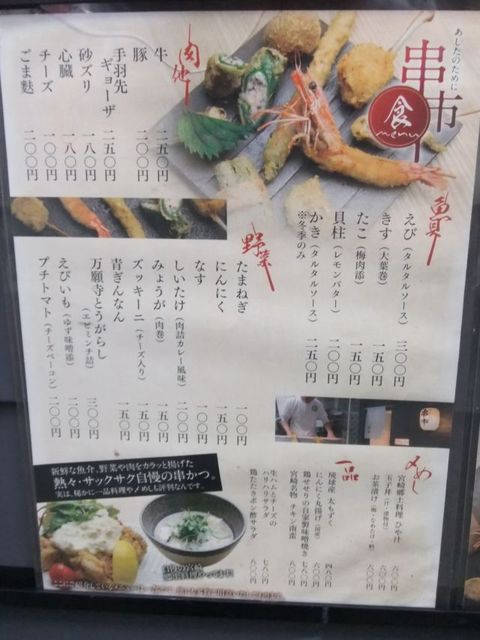 あしたのために
串市
食
menu
肉他
牛 二五〇円
豚 二〇〇円
手羽先ギョーザ 二五〇円
砂ズリ 一八〇円
心臓 一八〇円
チーズ 一〇〇円
ごま麩 二〇〇円
魚貝
えび（タルタルソース） 三〇〇円
きす（大葉巻） 一五〇円
たこ（梅肉添） 一五〇円
貝柱（レモンバター） 二〇〇円
かき（タルタルソース） 二五〇円
※冬季のみ
野菜
たまねぎ 一〇〇円
にんにく 一五〇円
なす 一〇〇円
しいたけ（肉詰カレー風味） 二〇〇円
みょうが（肉巻） 一五〇円
ズッキーニ（チーズ入り） 一五〇円
青ぎんなん 一五〇円
万願寺とうがらし（エビミンチ詰） 三〇〇円
えびいも（ゆず味噌添） 二〇〇円
プチトマト（チーズベーコン） 二〇〇円
串市
〆めし
宮崎郷土料理 ひや汁 六〇〇円
玉子丼
お茶漬け
一品
琉球産 太もずく 四八〇円
にんにく丸揚げ
鶏せせりの自家製味噌焼き
宮崎名物 チキン南蛮
生ハムとチーズのハリハリサラダ
鶏たたきポン酢サラダ
新鮮な魚介、野菜や肉をカラッと揚げた
熱々・サックサク自慢の串かつ。
実は、秘かに一品料理や〆めしも評判なんです。